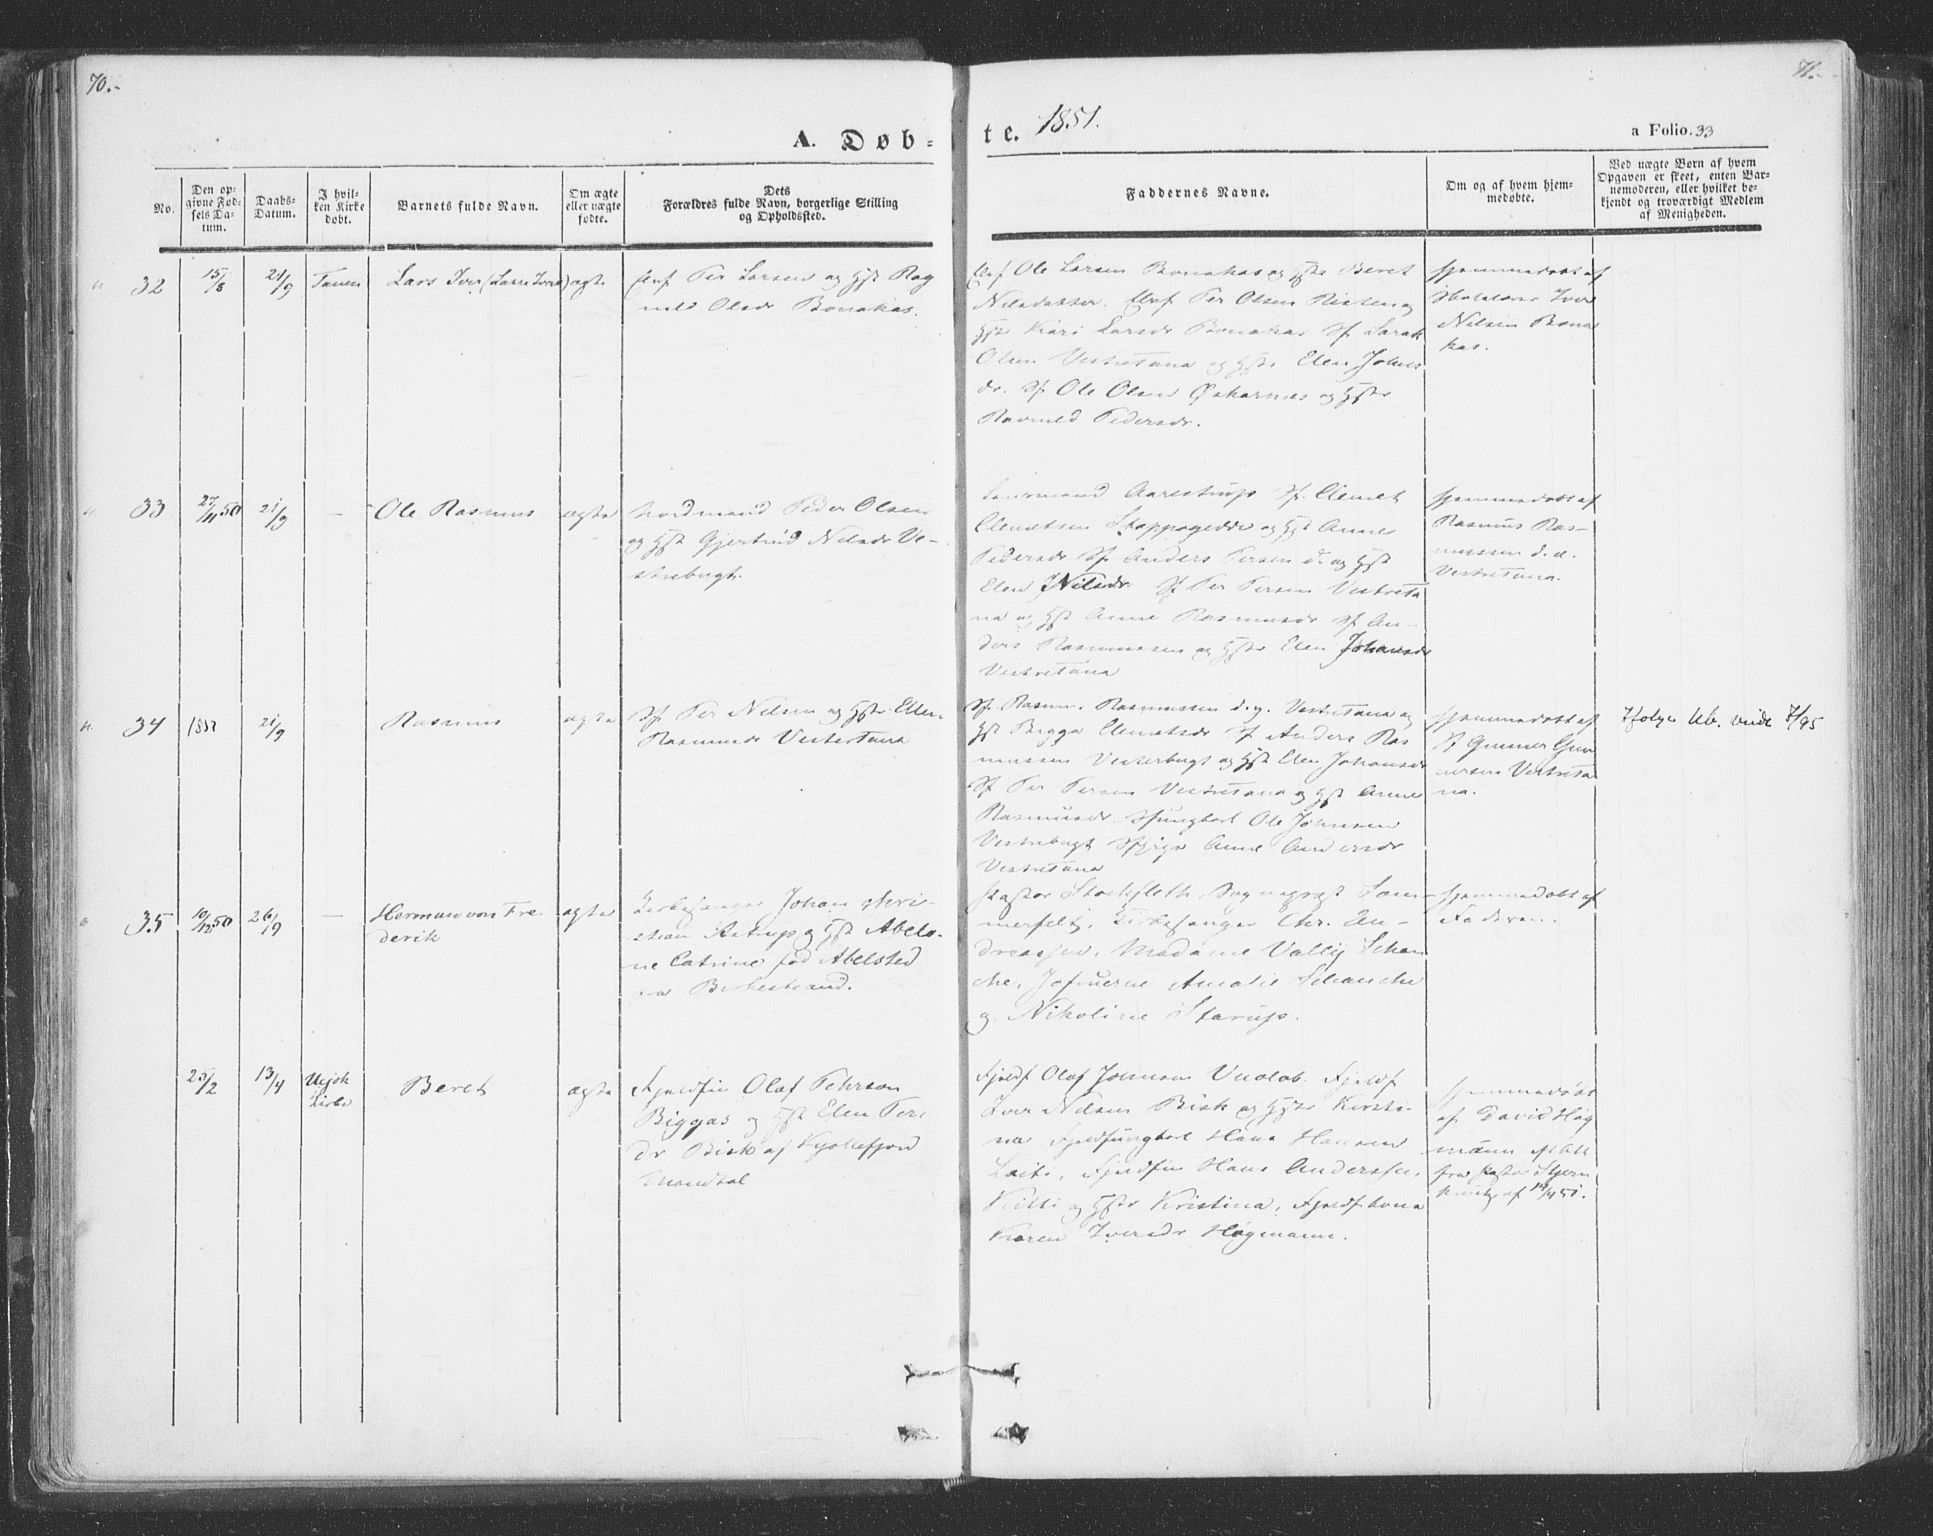 70.-
71.-
A. Døb-
te. 1851.
a Folio. 33
No.
Den op-
givne Fød-
sels Da-
tum.
Daabs-
Datum.
I hvil-
ken Kirke
døbt.
Barnets fulde Navn.
Om ægte
eller uægte
fødte.
Dets
Forældres fulde Navn, borgerlige Stilling
og Opholdssted.
Faddernes Navne.
Om og af hvem hjem-
medøbte.
Ved uægte Børn af hvem
Opgaven er skeet, enten Bar-
nemoderen, eller hvilket be-
kjendt og troværdigt Medlem
af Menigheden.
32
15/8
21/9
Tanen
Lars Iver
ægte
Per Larsen og Hst Rag
nild Olsdr Bonakas.
Ole Larsen Bonakas og Hst Beret
Nilsdatter. Per Olsen Risten og
Hst Kari Larsdr Bonakas Sf. Sarak
Olsen Vestretana og Hst Elen Johns
dr. Sf. Ole Olsen og Hst
Ravneld Pedersdr.
Hjemmedøbt af
Skolelærer Iver
Nilsen Bona
kas.
33
27/11 50
21/9
—
Ole Rasmus
ægte
Nordmand Peder Olsen
og Hst Gjertrud Nilsdr Ve-
strebugt.
Lensmand Aarestrup Sf. Clemet
Clemetsen Stappogedde og Hst Anne
Pedersdr Sf Anders Persen d. og Hst
Elen Nilsdr. Sf Per Persen Vestreta
na og Hst Anne Rasmusdr Sf An-
ders Rasmussen og Hst Elen Johansdr
Vestretana
Hjemmedøbt af
Rasmus Ras-
mussen d. æ.
Vestretana.
34
21/9
Rasmus
ægte
Sf. Per Nilsen og Hst Ellen
Rasmusdr Vestertana
Sf. Rasm. Rasmussen d. y. Vestretana og
Hst Bigga Clemetsdr Sf Anders Ras
mussen Vesterbugt og Hst Elen Johansdr
Sf Per Persen Vestretana og Hst Anne
Rasmusdr. Sfungkarl Ole Johnsen
Vestrebugt Sfpige Anne Andersdr
Vestretana
Hjemmedøbt af
Sf Gunner Gun
nersen Vestreta
na.
Ifølge kb. vide 7/95
35
10/12 50
26/9
—
Herman von Fre
derik
ægte
Kirkesanger Johan Chri-
stian Astrup og Hst Abelo-
ne Catrine fød Abelsted
fra Birkestrand.
Pastor Stockfleth, Sogneprest Som-
merfelt, Kirkesanger Chr. An-
dreasen, Madame Vallij Schan
che, Jofruerne Amalie Schanche
og Nikoline Starup.
Hjemmedøbt af
Faderen.
25/2
13/4
Utsjok
Kirke
Beret
ægte
Fjeldfin Olaf Pehrson
Biggas og Hst Elen Pers
dr Bisk af Kjøllefjord
Mandtal
Fjeldf Olaf Johnsen Vuolab. Fjeldf
Iver Nilsen Bisk og Hst Kirsti-
na Fjeldfungkarl Hans Hansen
Laiti, Fjeldfin Hans Andersen
Kitti og Hst Kristina, Fjeldfkona
Karen Iversdr Høgmann.
Hjemmedøbt
af David Høg
mann
fra Pastor Stjern